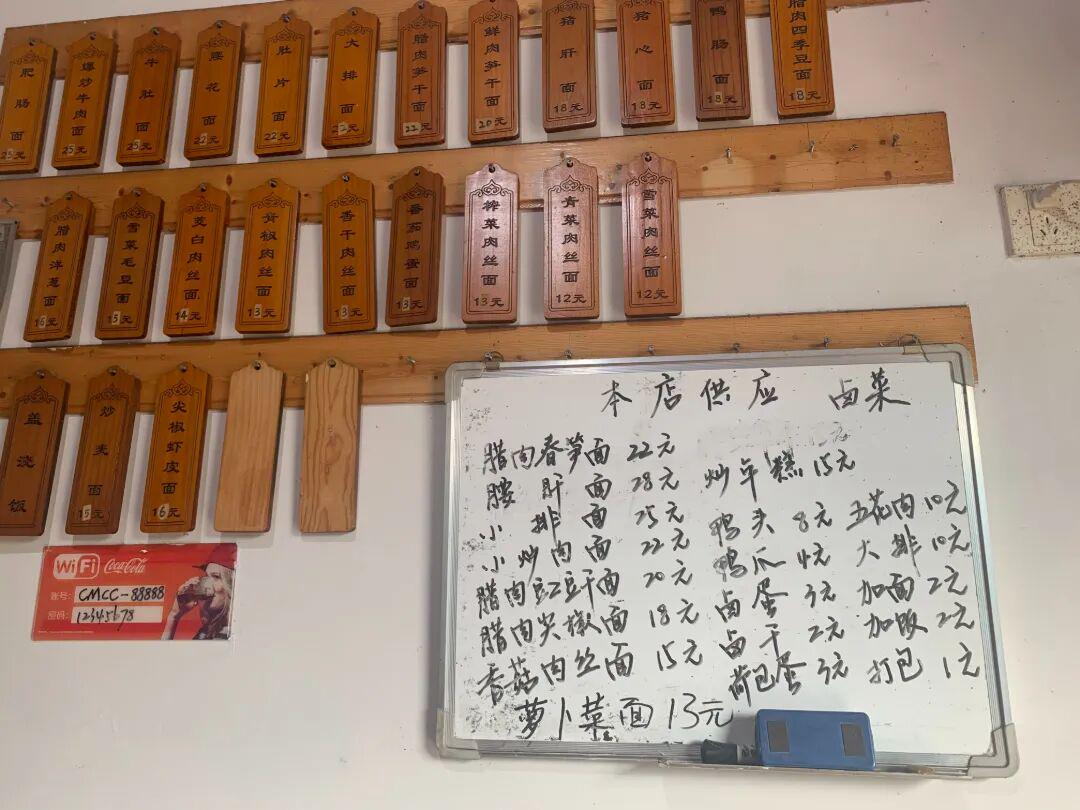 肥肠面 25元
爆炒牛肉面 25元
牛肚面 25元
腰花面 22元
肚片面 22元
大排面 22元
腊肉笋干面 22元
鲜肉笋干面 20元
猪肝面 18元
猪心面 18元
鸭肠面 18元
腊肉四季豆面 18元
腊肉洋葱面 16元
雪菜毛豆面 15元
茭白肉丝面 14元
青椒肉丝面 13元
香干肉丝面 13元
番茄鸡蛋面 13元
榨菜肉丝面 13元
青菜肉丝面 12元
雪菜肉丝面 12元
盖浇饭
炒夹面 15元
尖椒虾皮面 16元
WiFi Coca-Cola
账号: CMCC-88888
密码: 12345678
本店供应 卤菜
腊肉春笋面 22元
腰肝面 28元 炒年糕 15元
小排面 25元 鸭头 8元 五花肉 10元
小炒肉面 22元 鸭爪 4元 大排 10元
腊肉豇豆干面 20元 卤蛋 3元 加面 2元
腊肉尖椒面 18元 卤干 2元 加饭 2元
香菇肉丝面 15元 荷包蛋 3元 打包 1元
萝卜菜面 13元